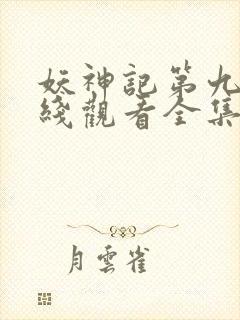 妖神記第九
綫觀看全集
月雲雀